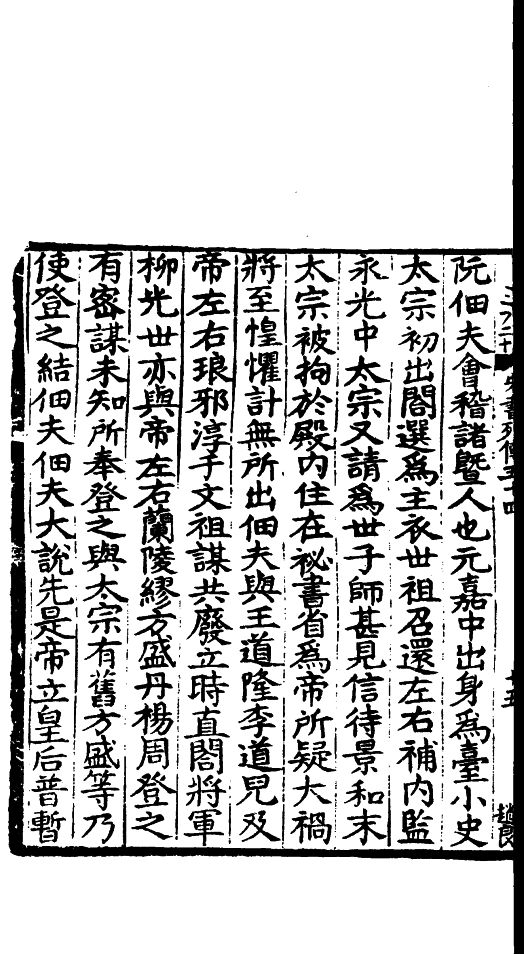 阮佃夫會稽諸曁人也元嘉中出身爲臺小史
太宗初出閤選爲主衣世祖召還左右補内監
永光中太宗又請爲世子師甚見信待景和末
太宗被拘於殿内住在祕書省爲帝所疑大禍
將至惶懼計無所出佃夫與王道隆李道兒及
帝左右琅邪淳于文祖謀共廢立時直閤將軍
柳光世亦與帝左右蘭陵繆方盛丹楊周登之
有密謀未知所奉登之與太宗有舊方盛等乃
使登之結佃夫佃夫大說先是帝立皇后普暫